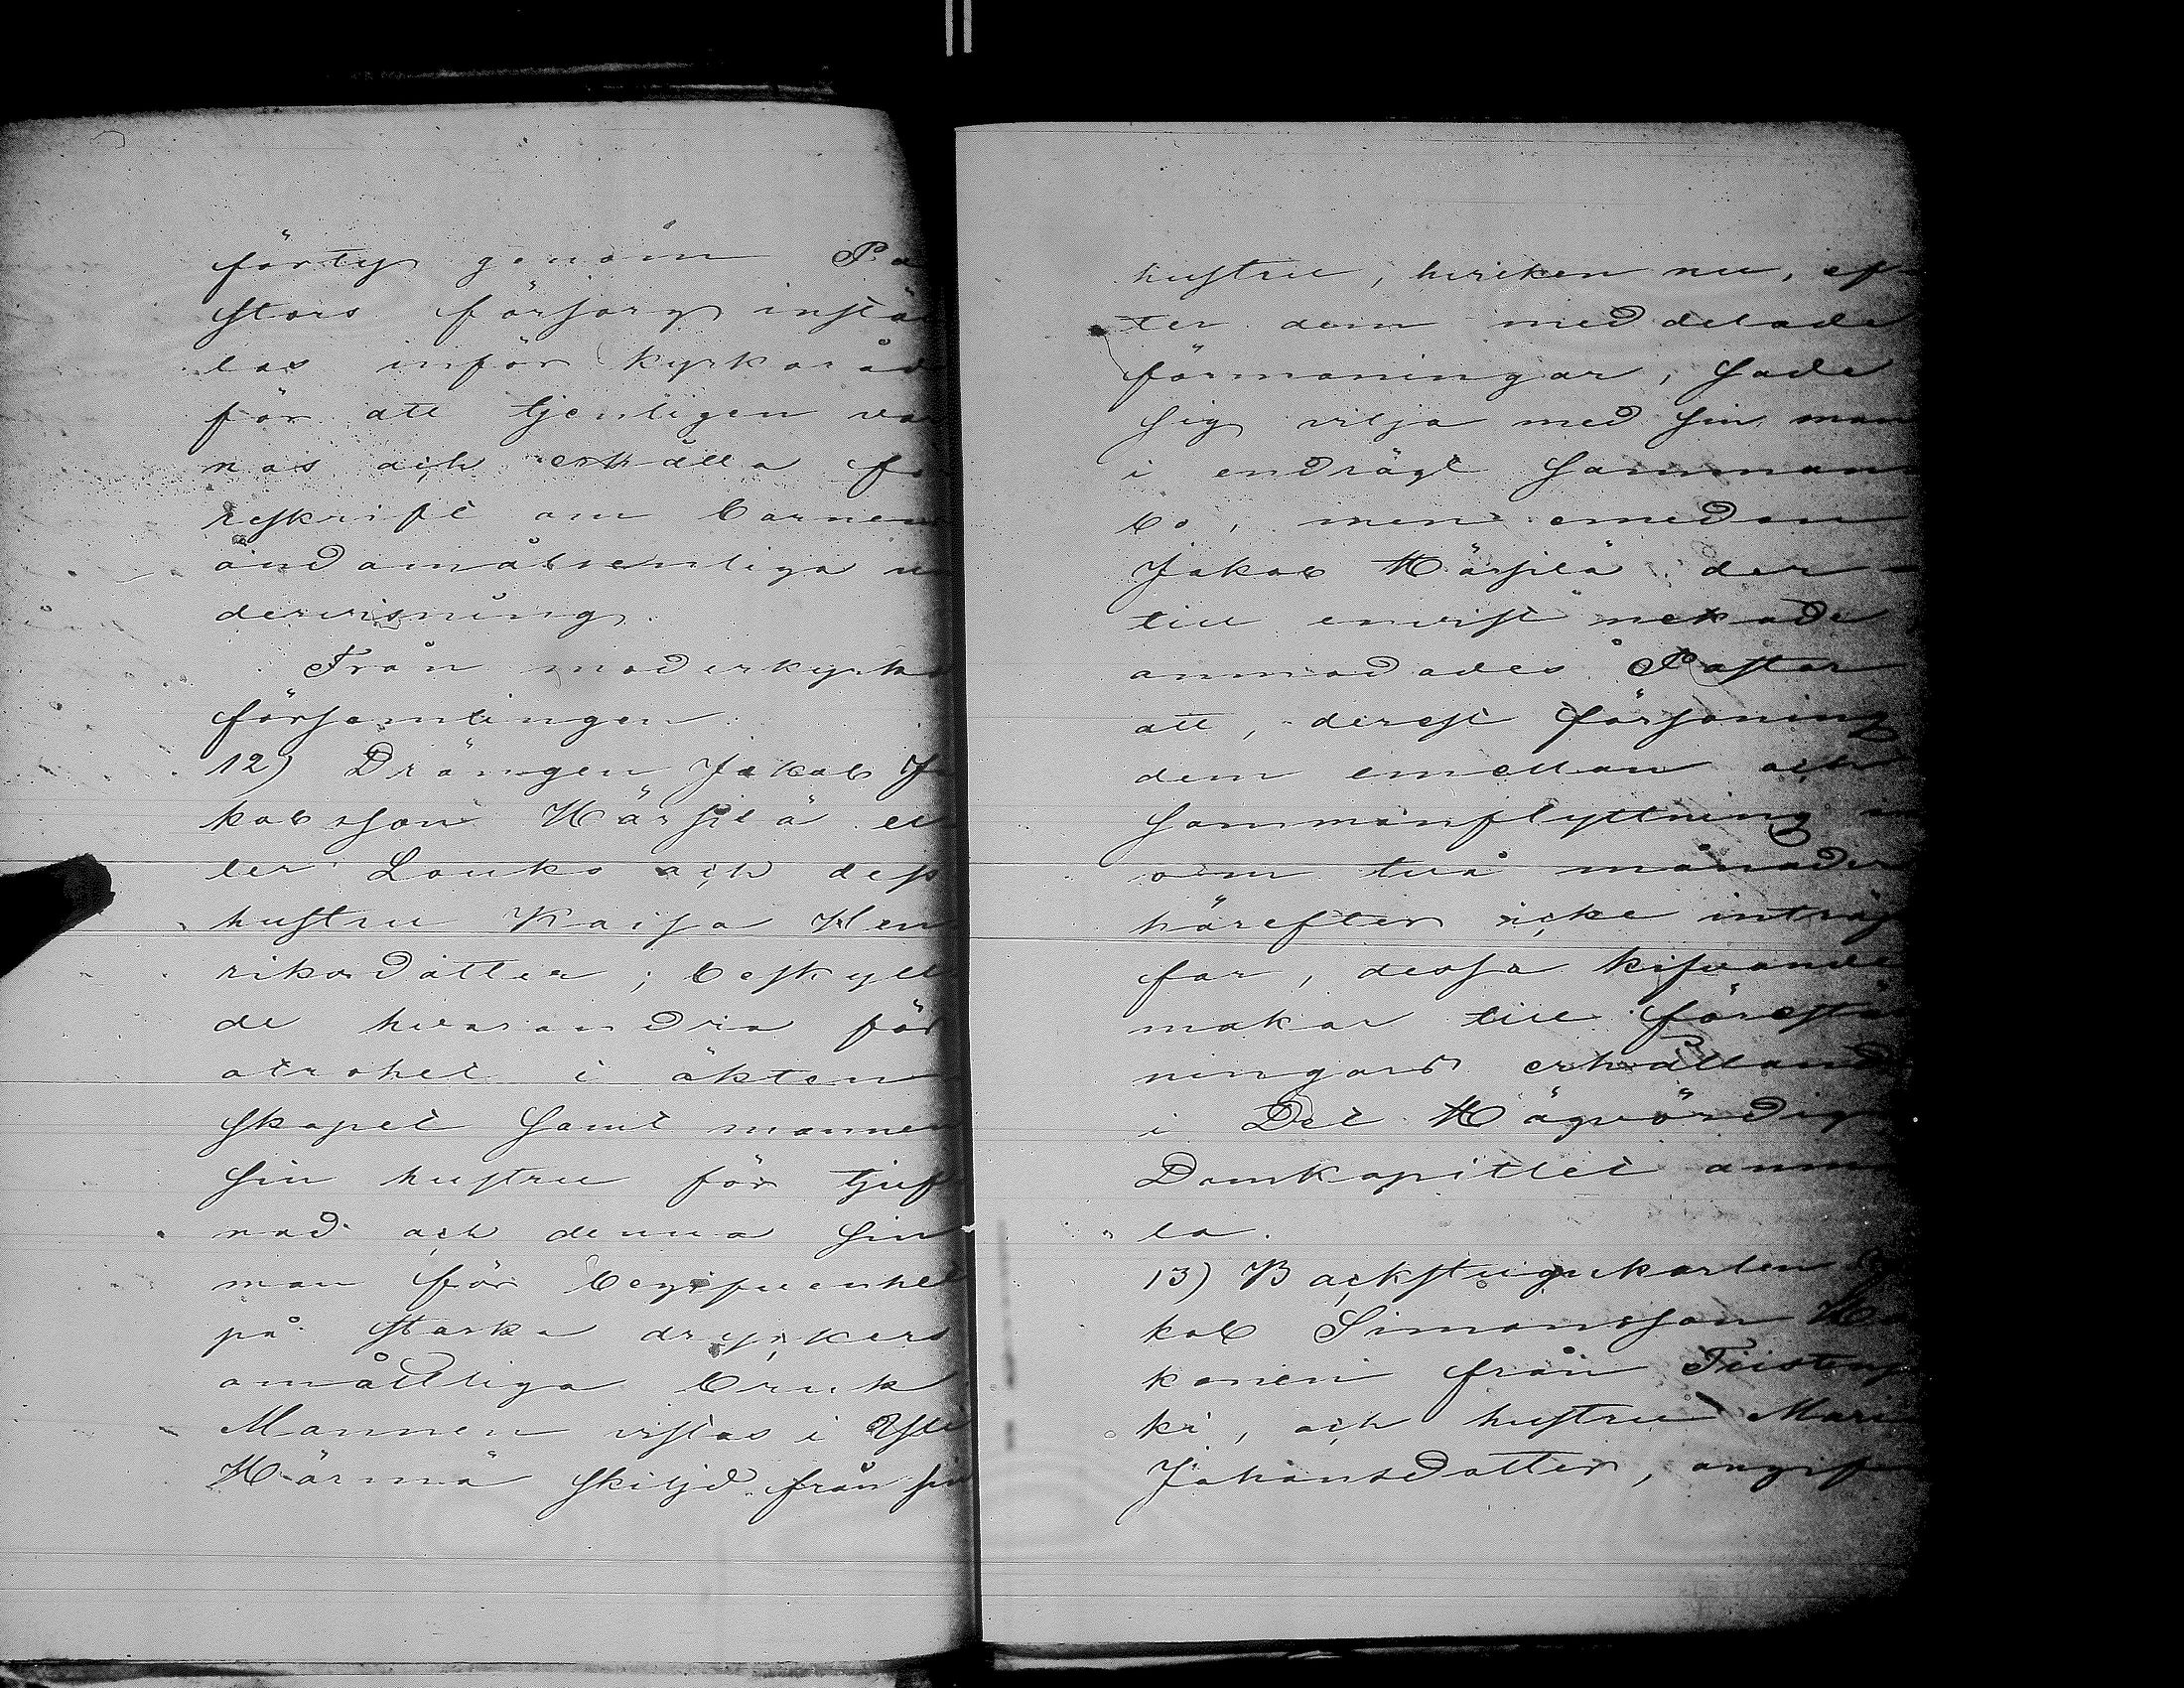 förty genom Pa
stors försorg instäl
las inför kyrkoråd
för att tjenligen var
nas och erhålla fö
reskrift om barnens
ändamålsenliga un
dervisning.
Från moderkyrko
församlingen.
12) Drängen Jakob Ja
kobsson Härsilä el
ler Louko och dess
hustru Kaisa Hen
riksdotter; beskyll
de hvarandra för
otrohet i äkten
skapet samt mannen
sin hustru för tjuf
nad och denna sin
man för begifvenhet
på starka dryckers
omåttliga bruk
Mannen vistas i Yli
Härmä skiljd från sin
hustru, hvilken nu, ef
ter dem meddelade
förmaningar, sade
sig vilja med sin man
i endrägt samman
bo, men emedan
Jakob Härsilä der
till envist nekade
anmodades Pastor
att, derest försoning
dem emellan och
sammanflyttning in
om två månader
härefter icke inträf
far, dessa kifvande
makar till förestä
ningars erhållande
i Det Högvördiga
Domkapitlet anmä
la.
13) Backstugukarlen Ja
kob Simonsson
konen från Teistensy
ki, och hustru Maria
Johansdotter, angifv